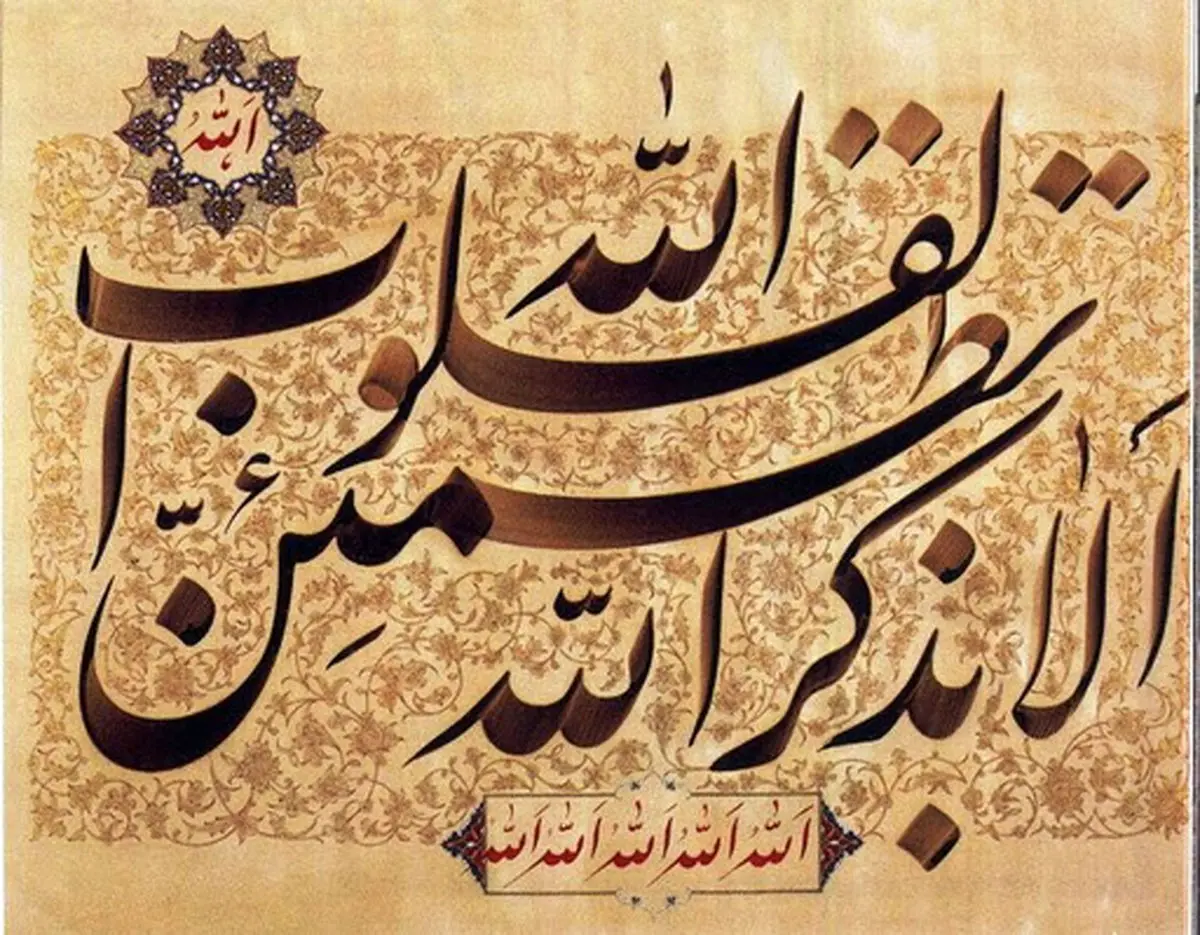 اَللّٰه
اللّٰه
اَلا بذكر اللّٰه
تطمئِنّ القلوب
اَللّٰه اَللّٰه اَللّٰه اَللّٰه اَللّٰه